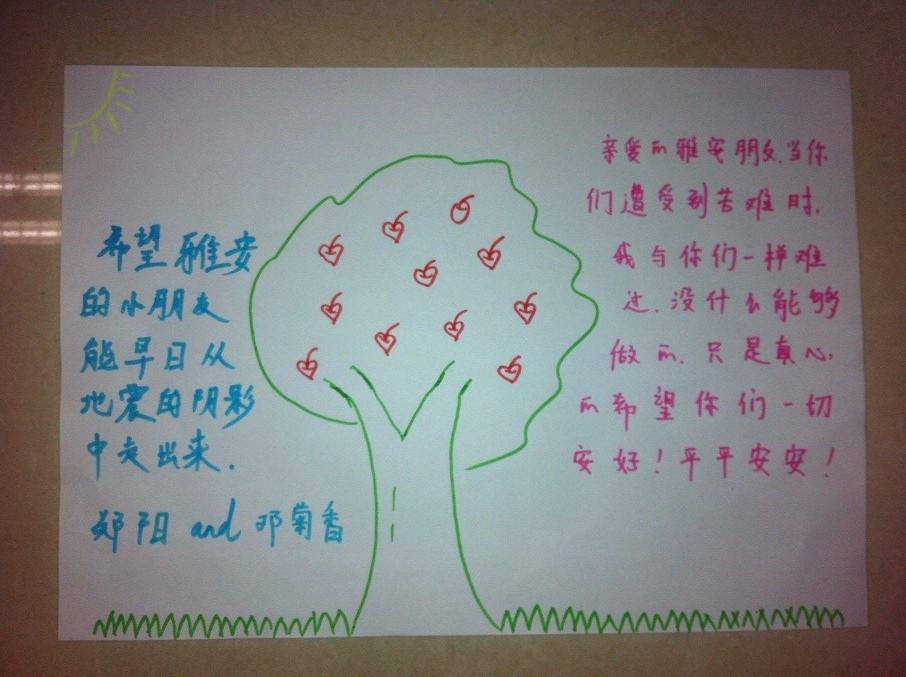 希望雅安
的小朋友
能早日从
地震的阴影
中走出来.
郑阳 and 邓菊香
亲爱的雅安朋友,当你
们遭受到苦难时,
我与你们一样难
过.没什么能够
做的.只是真心
的希望你们一切
安好!平平安安!